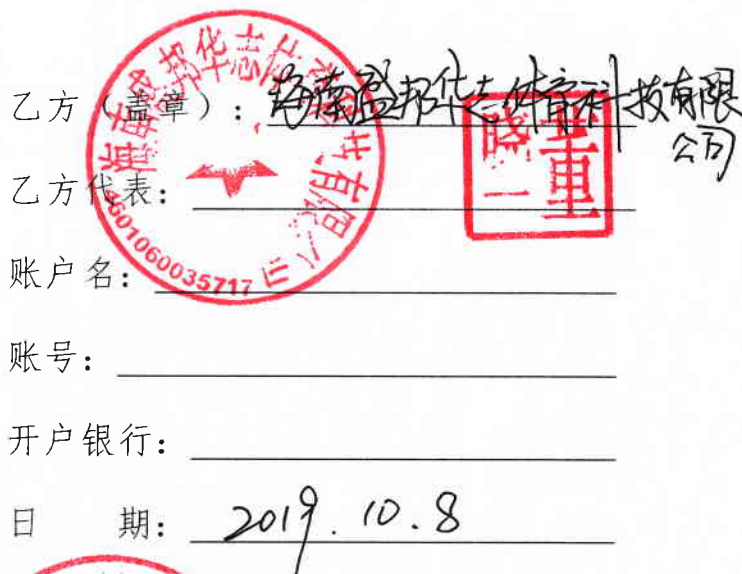 乙方（盖章）：海南盛邦华志体育科技有限
公司
乙方代表：
账户名：
账号：
开户银行：
日 期：2019.10.8
海南盛邦华志体育科技有限公司
4601060035717
晓一